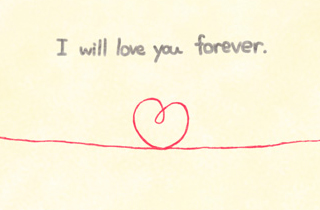 I will love you forever.